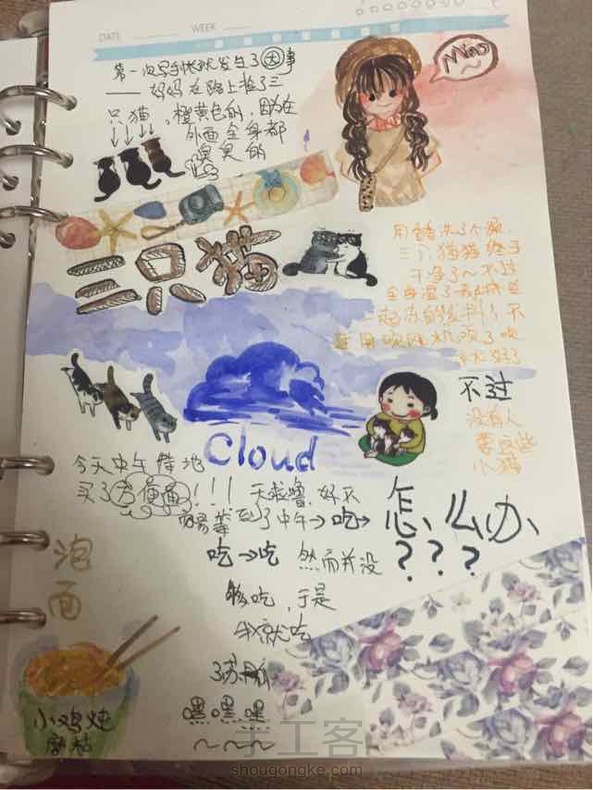 DATE
WEEK
第一次写手帐就发生了大事
——妈妈在路上捡了三
只猫,橙黄色的,因为在
外面全身都
臭臭的
MIAO
三只猫
用
洗了个澡,
三只猫猫终于
干净了~不过
全身湿了
不
用吹风机
吹
好了
Cloud
不过
没有人
要这些
小猫
怎么办
???
今天中午特地
买了
!!!
好不
容易等到了中午→吃→
吃→吃 然而并没
够吃,于是
我就吃
了
嘿嘿嘿
~~~
泡
面
小鸡炖
蘑菇
手工客
shougongke.com